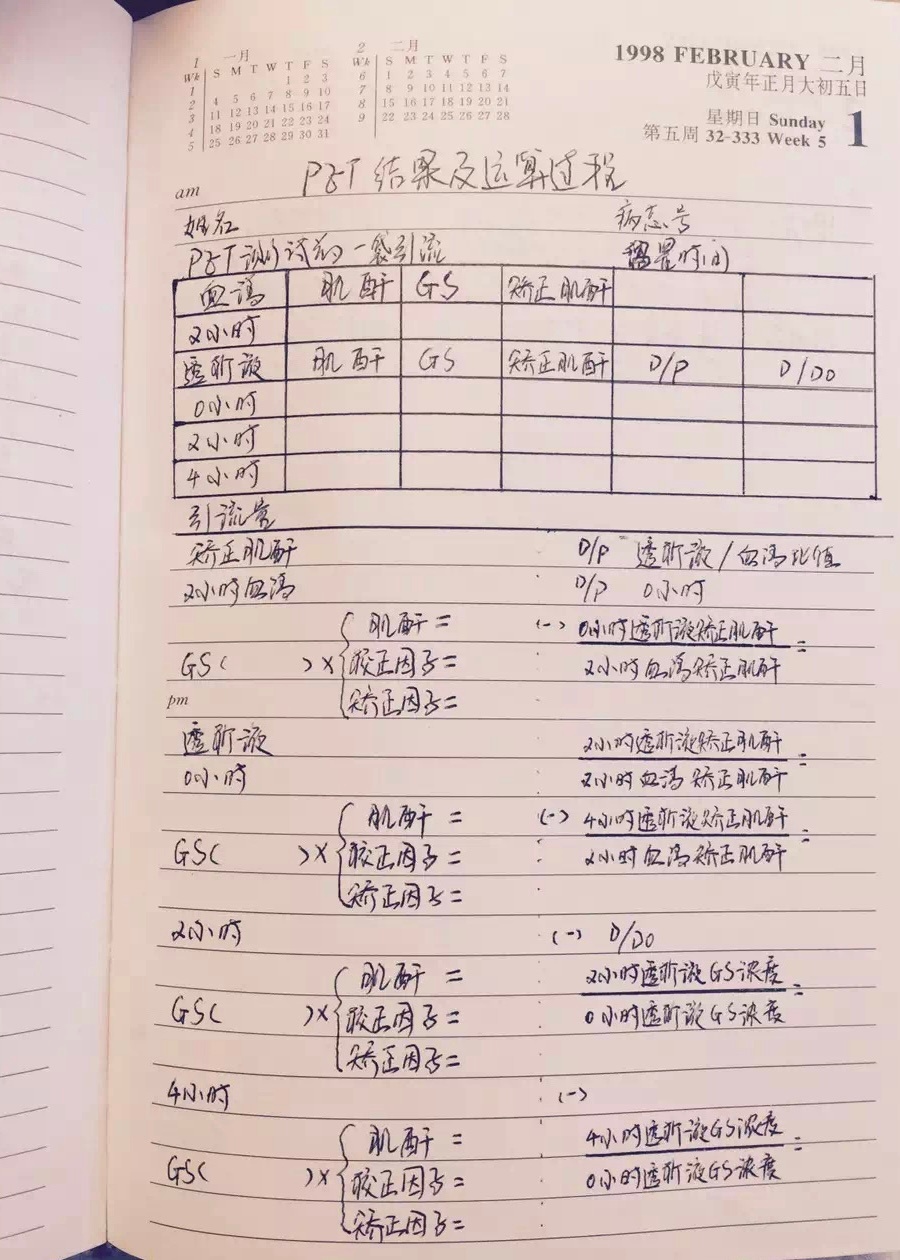 1 一月
Wk S M T W T F S
1 1 2 3
2 4 5 6 7 8 9 10
3 11 12 13 14 15 16 17
4 18 19 20 21 22 23 24
5 25 26 27 28 29 30 31
2 二月
Wk S M T W T F S
6 1 2 3 4 5 6 7
7 8 9 10 11 12 13 14
8 15 16 17 18 19 20 21
9 22 23 24 25 26 27 28
1998 FEBRUARY 二月
戊寅年正月大初五日
星期日 Sunday
第五周 32-333 Week 5 1
am PET 结果及运算过程
姓名 病志号
PET 前一袋引流 留置时间
血清 肌酐 GS 矫正肌酐
2小时
透析液 肌酐 GS 矫正肌酐 D/P D/D0
0小时
2小时
4小时
引流量
矫正肌酐 D/P 透析液/血清比值
2小时血清 D/P 0小时
肌酐= (-) 0小时透析液矫正肌酐 =
GS( )× 校正因子= 2小时血清矫正肌酐
pm 矫正因子=
透析液 2小时透析液矫正肌酐 =
0小时 2小时血清矫正肌酐
肌酐= (-) 4小时透析液矫正肌酐 =
GS( )× 校正因子= 2小时血清矫正肌酐
矫正因子=
2小时 (-) D/D0
肌酐= 2小时透析液GS浓度 =
GS( )× 校正因子= 0小时透析液GS浓度
矫正因子=
4小时 (-)
肌酐= 4小时透析液GS浓度 =
GS( )× 校正因子= 0小时透析液GS浓度
矫正因子=